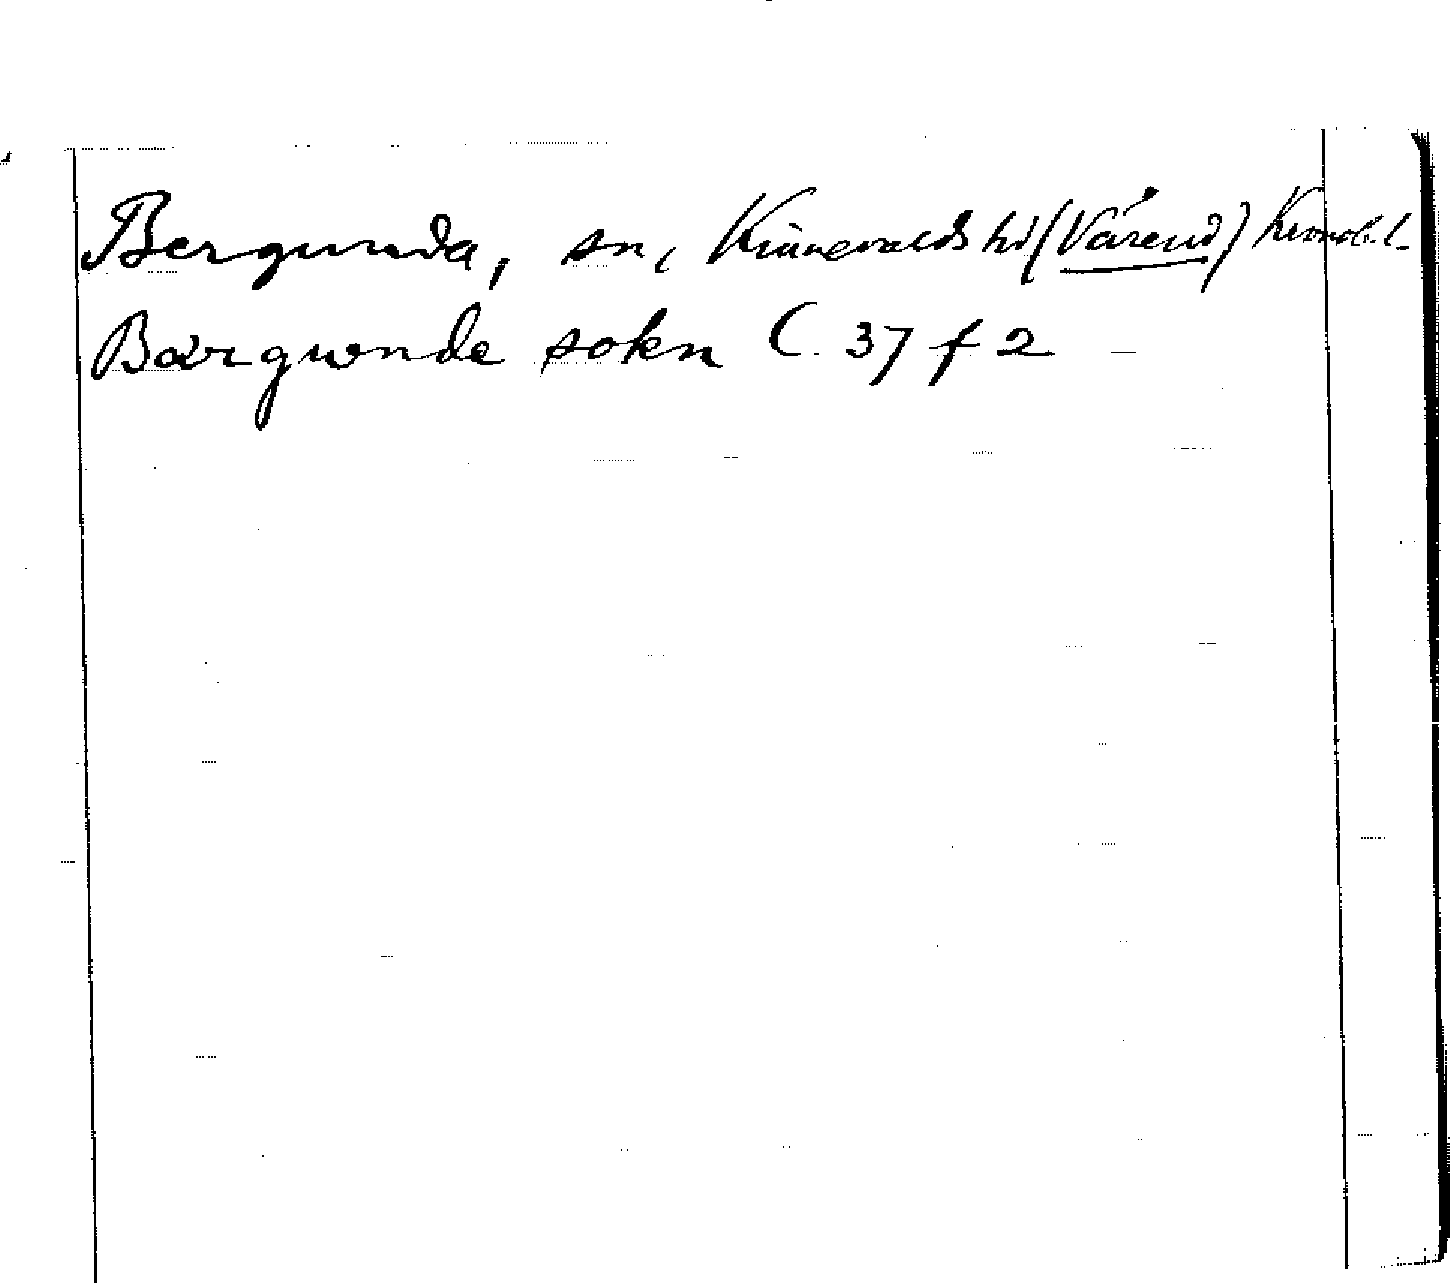 Bergunda, sn, Kinnevalds hd (Värend) Kronob. l.
Bærgwnde sokn C. 37 f 2